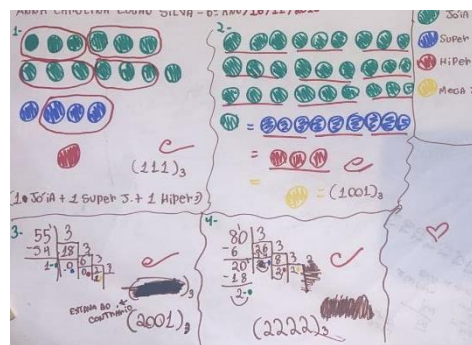 ANNA CAROLINA
SILVA - 6º ANO
Joia
Super
Hiper
Mega
1-
(111)₃
(1 Joia + 1 Super J. + 1 Hiper)
2-
=
=
= (1001)₃
3-
55 | 3
- 54 18 | 3
1 0 6 | 3
0 2
ESTAVA AO
CONTRÁRIO
(2001)₃
4-
80 | 3
- 6 26 | 3
20 8 | 3
- 18 2 2
2
(2222)₃